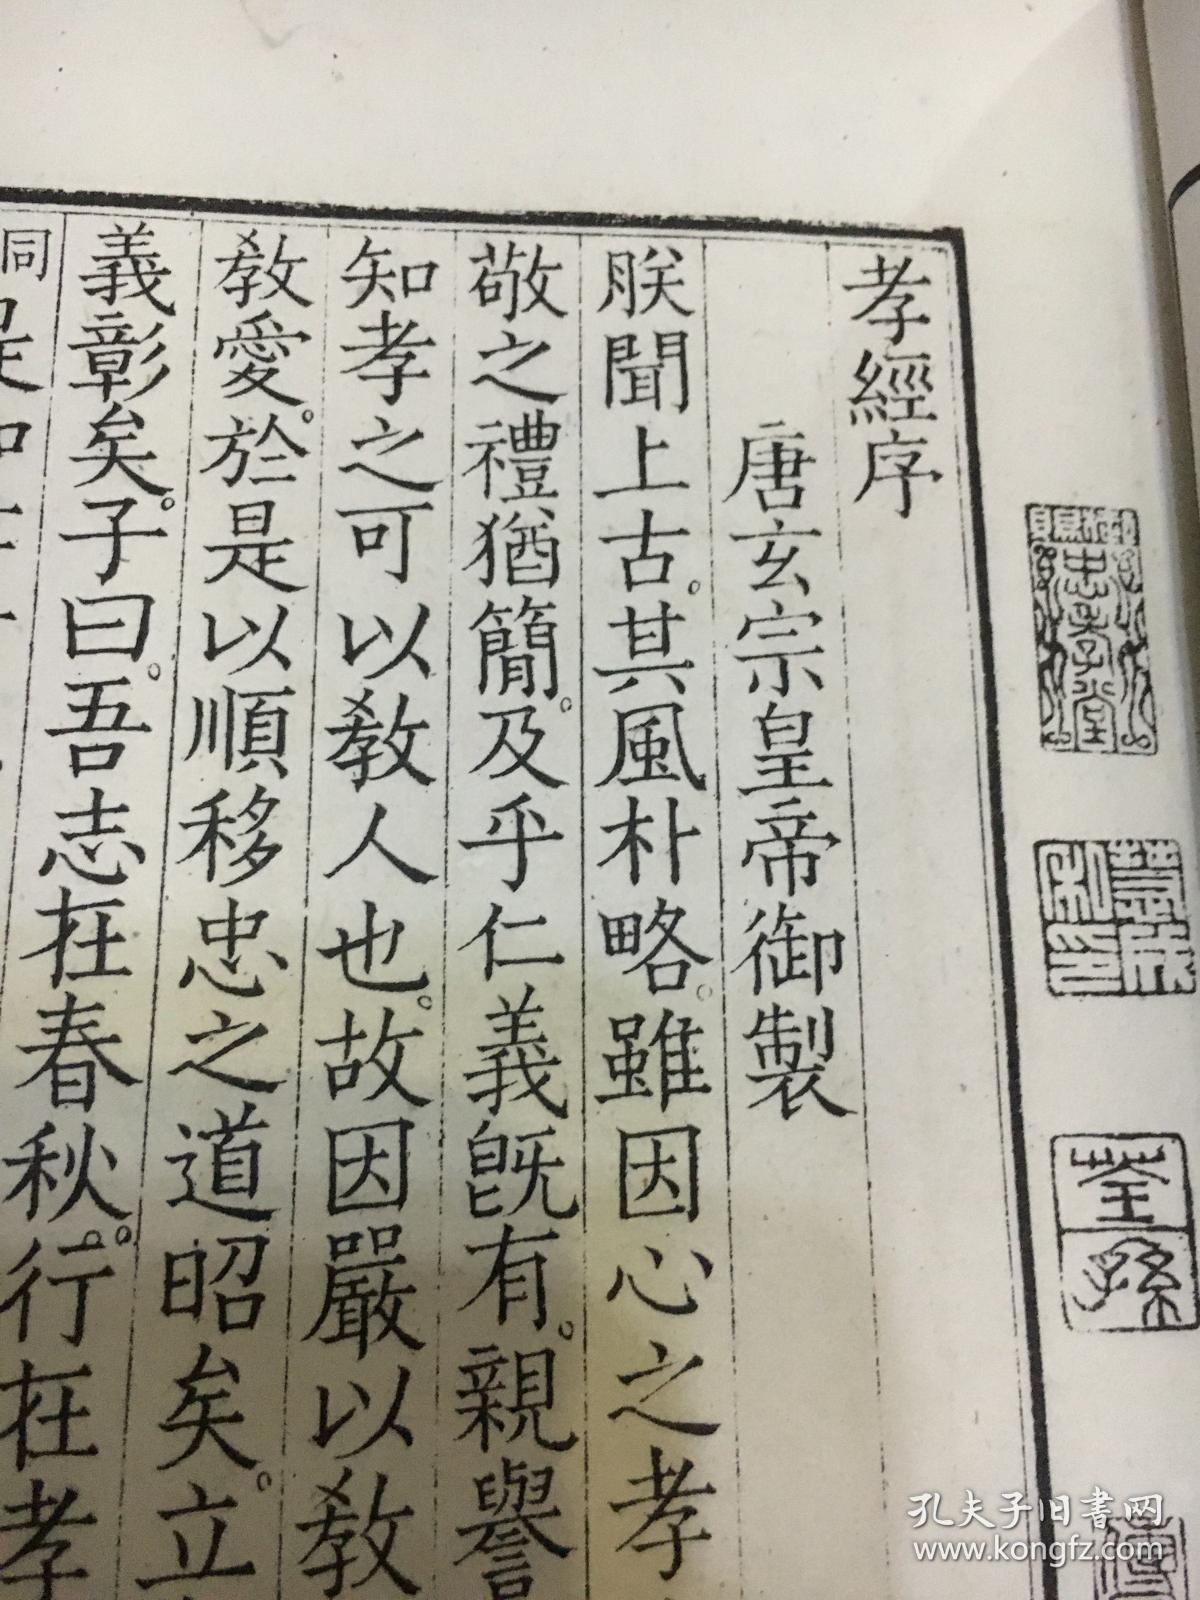 孝經序
唐玄宗皇帝御製
朕聞上古。其風朴略。雖因心之孝
敬之禮猶簡。及乎仁義旣有。親譽
知孝之可以敎人也。故因嚴以敎
敎愛。於是以順移忠之道昭矣。立
義彰矣。子曰。吾志在春秋。行在孝
同是知
忠孝堂
荃孫
孔夫子旧書网
www.kongfz.com